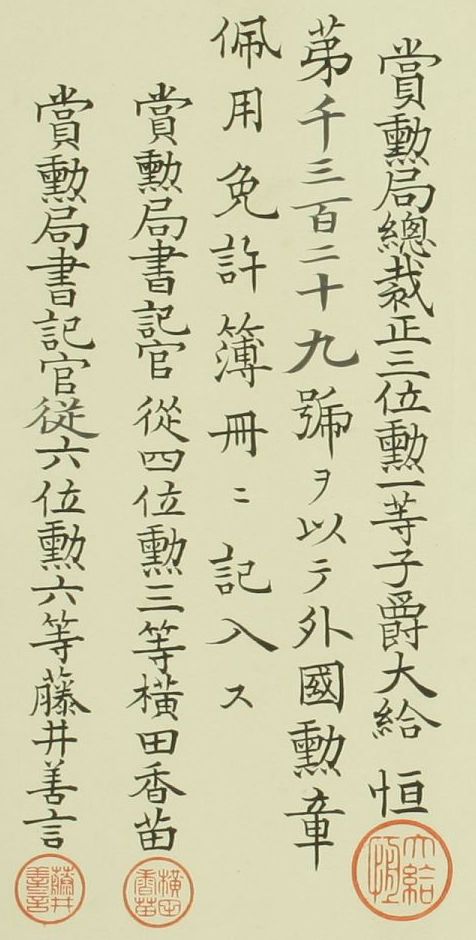 賞勲局總裁正三位勲一等子爵大給恒
大給恒
第千三百二十九號ヲ以テ外國勲章
佩用免許簿冊ニ記入ス
賞勲局書記官從四位勲三等横田香苗
横田香苗
賞勲局書記官従六位勲六等藤井善言
藤井善言